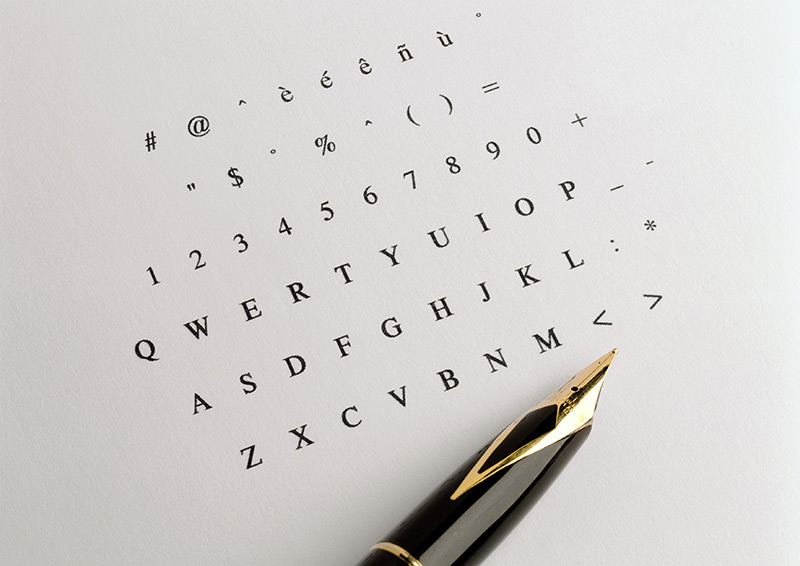 # @ ^ è é ê ñ ù °
" $ ° % ^ ( ) =
1 2 3 4 5 6 7 8 9 0 +
Q W E R T Y U I O P _ -
A S D F G H J K L : *
Z X C V B N M < >